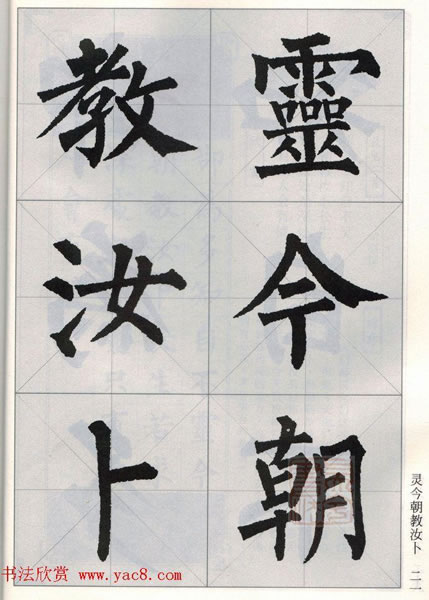 靈今朝
教汝卜
灵今朝教汝卜 二一
书法欣赏 www.yac8.com